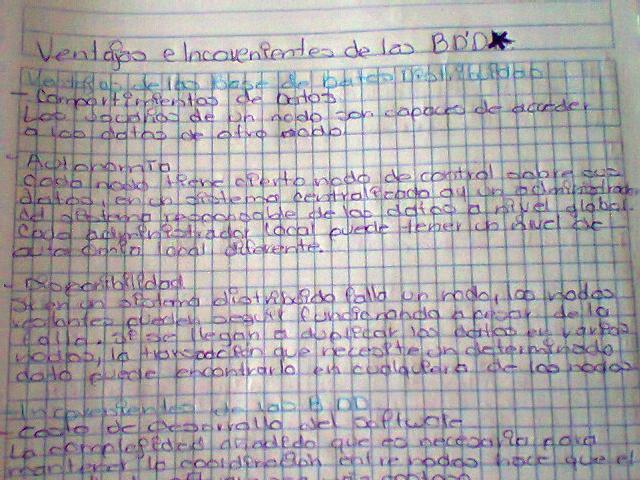 Ventajas e Incovenientes de las BDD
Ventajas de las Base de Datos Distribuidas
- Compartimientos de datos
Los usuarios de un nodo son capaces de acceder
a los datos de otro nodo
- Autonomia
Cada nodo tiene cierto nodo de control sobre sus
datos, en un sistema centralizado ay un administrador
del sistema responsable de los datos a nivel global
Cada administrador local puede tener un nivel de
autonomia local diferente.
- Disponibilidad
Si en un sistema distribuido falla un nodo, los nodos
restantes pueden seguir funcionando a pesar de la
falla. Si se llegan a duplicar los datos en varios
nodos, la transacción que necesite un determinado
dato puede encontrarlo en cualquiera de los nodos
Incovenientes de las BDD
- Costo de desarrollo del software
La complejidad añadido que es necesaria para
mantener la cordinacion entre nodos hace que el